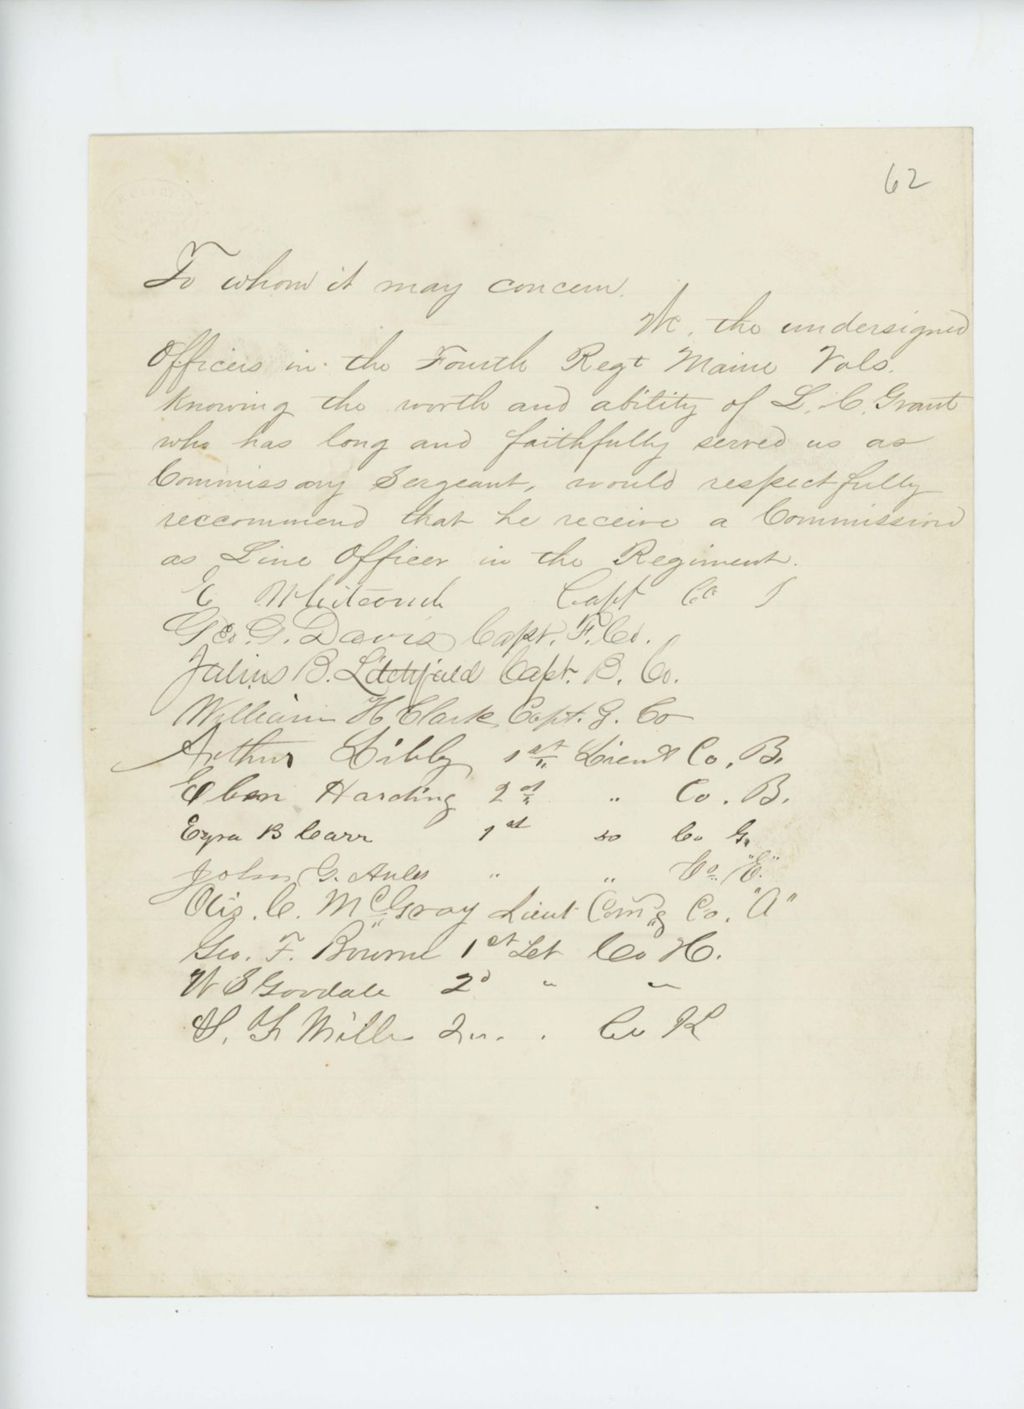 62
To whom it may concern.
We, the undersigned
Officers in the Fourth Regt Maine Vols.
knowing the worth and ability of L. C. Grant
who has long and faithfully served us as
Commissary Sergeant, would respectfully
reccommend that he receive a Commission
as Line Officer in the Regiment.
E Whitcomb Capt Co I
Geo. G. Davis Capt. F. Co.
Julius B. Litchfield Capt. B. Co.
William H Clark Capt. G. Co
Arthur Libby 1st Lieut Co. B.
Eben Harding 2d " Co. B.
Ezra B Carr 1st do Co G.
John G. " " Co. "E."
Otis. C. McGray Lieut Com'g Co. "A"
Geo. F. Bourne 1st Lt Co H.
W S Goodale 2d " "
Co K